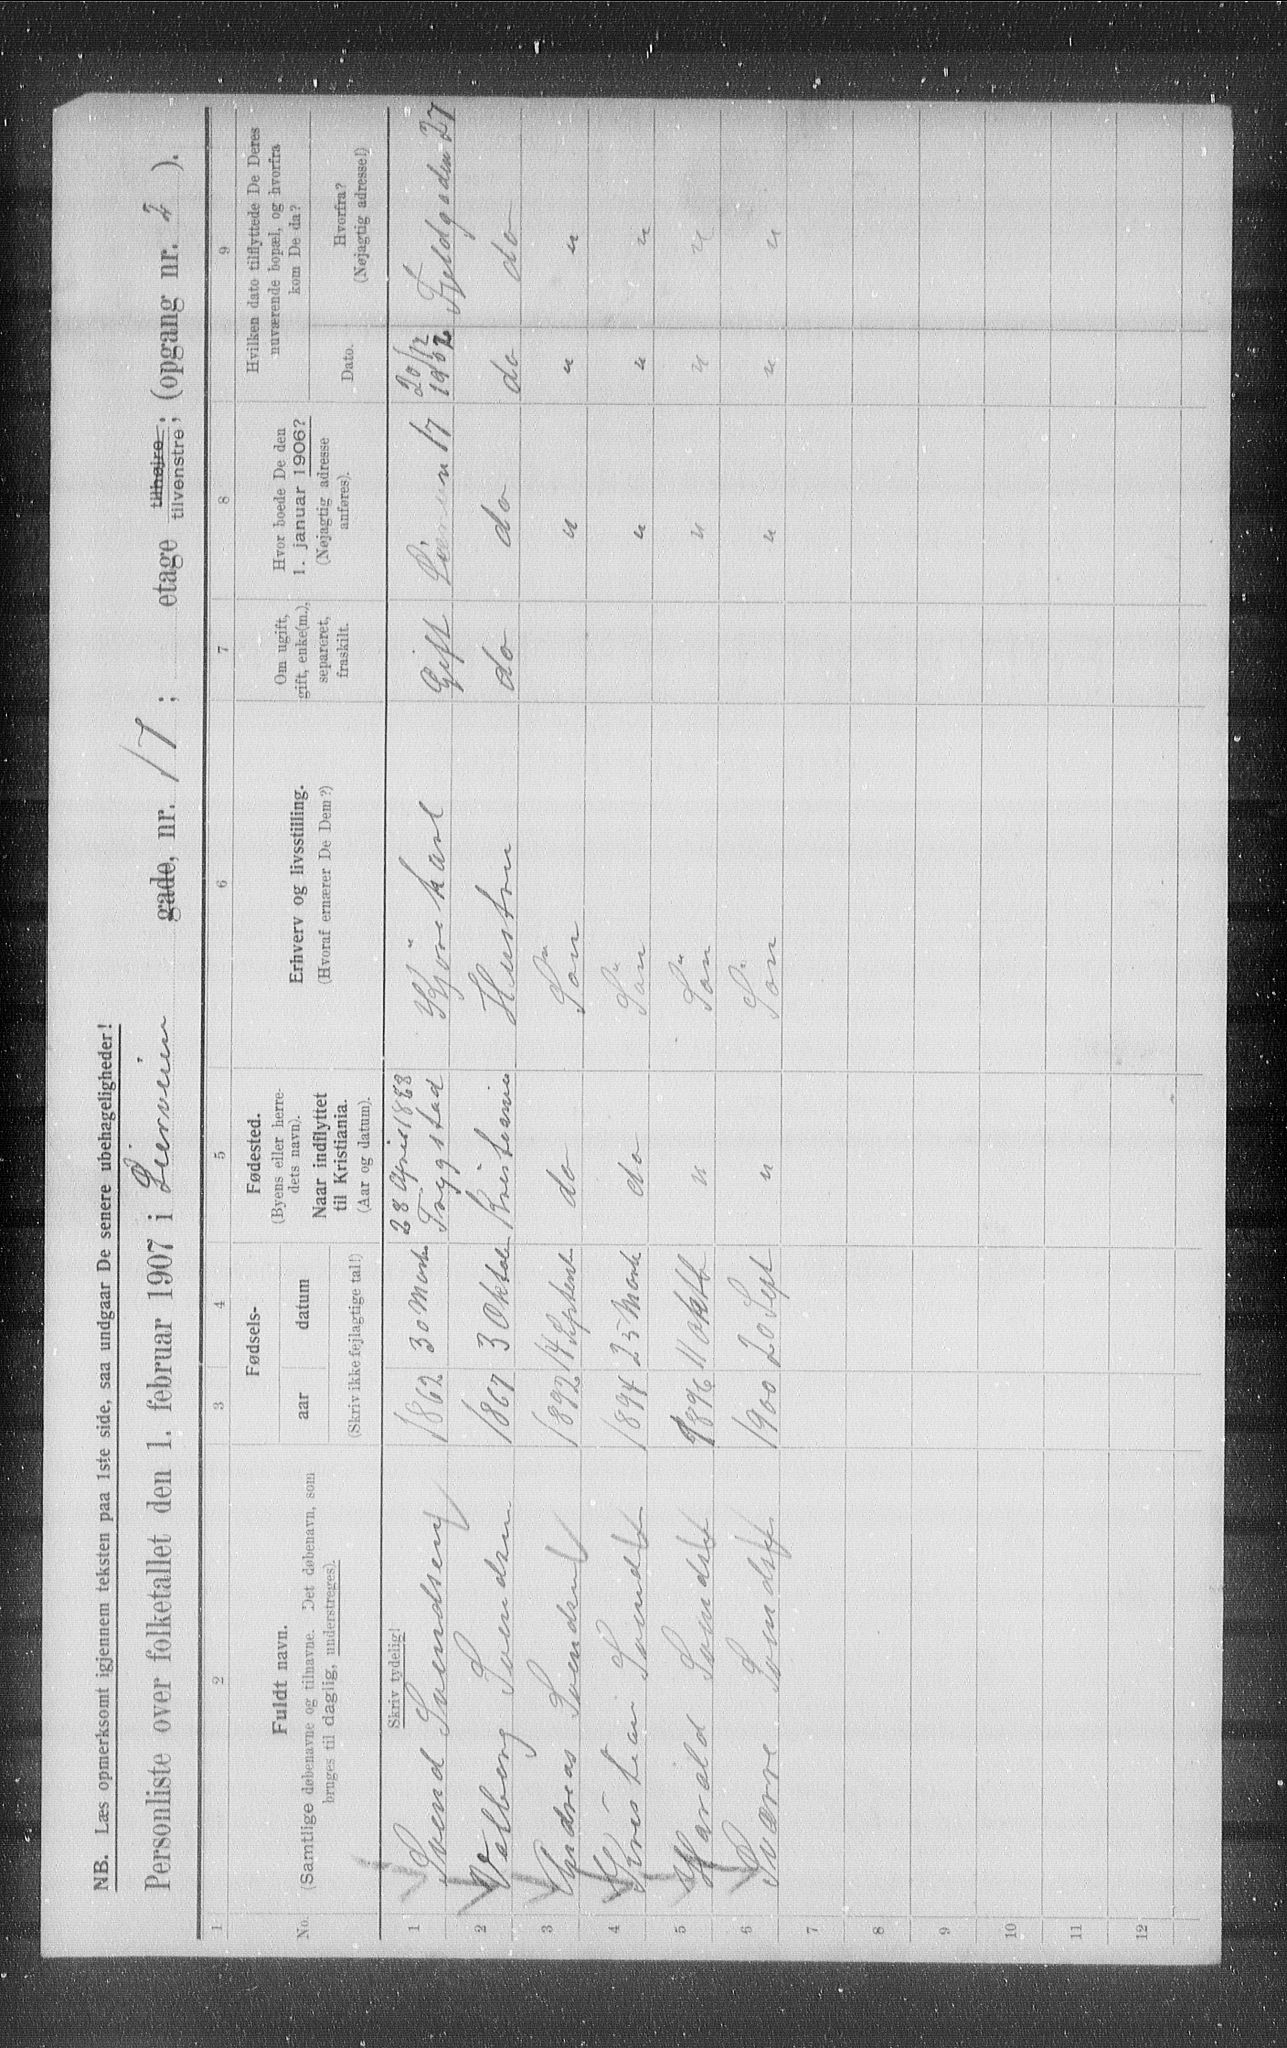 NB. Læs opmerksomt igjennem teksten paa 1ste side, saa undgaar De senere ubehageligheder!
Personliste over folketallet den 1. februar 1907 i Lierveien gade, nr. 17; etage tilhøjre; tilvenstre; (opgang nr. 2).
1 2 3 4 5 6 7 8 9
No.
Fuldt navn.
(Samtlige døbenavne og tilnavne. Det døbenavn, som
bruges til daglig, understreges).
Fødsels-
aar datum
(Skriv ikke fejlagtige tal!)
Fødested.
(Byens eller herre-
dets navn).
Naar indflyttet
til Kristiania.
(Aar og datum).
Erhverv og livsstilling.
(Hvoraf ernærer De Dem?)
Om ugift,
gift, enke(m.),
separeret,
fraskilt.
Hvor boede De den
1. januar 1906?
(Nøjagtig adresse
anføres).
Hvilken dato tilflyttede De Deres
nuværende bopæl, og hvorfra
kom De da?
Dato.
Hvorfra?
(Nøjagtig adresse!)
Skriv tydelig!
1 Svend Svendsen 1862 30 Marts 28 April 1888 Trygstad Kjørekarl Gift 17 20/12 1902 Fjeldgaden 27
2 Valborg Svendsen 1867 3 Oktober Kristiania Hustru do do do do
3 Andreas Svendsen 1892 14 Septent do Søn " " "
4 Kristian Svendsen 1894 25 Mars do Søn " " "
5 Harald Svendsen 1896 11 oktb " Søn " " "
6 Sværre Svendsen 1900 20 Sept " Søn " " "
7
8
9
10
11
12